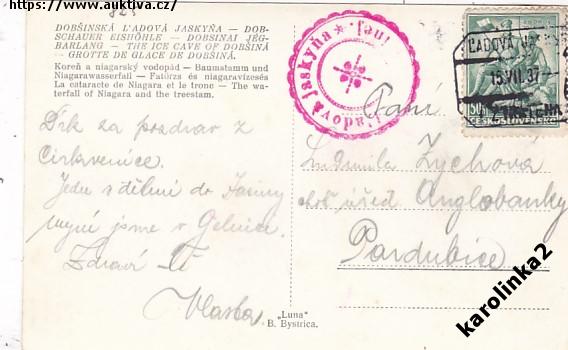 https://www.auktiva.cz/
825
DOBŠINSKÁ ĽADOVÁ JASKYŇA — DOB-
SCHAUER EISHÖHLE — DOBSINAI JÉG-
BARLANG — THE ICE CAVE OF DOBŠINÁ
— GROTTE DE GLACE DE DOBŠINÁ.
Koreň a niagarský vodopád — Baumstamm und
Niagarawasserfall — Fatörzs és niagaravízesés
La cataracte de Niagara et le trone — The wa-
terfall of Niagara and the treestam.
Dík za pozdrav z
Cirkvenice.
Jedu s dětmi do
nyní jsme v Gelnice.
Zdraví Tě
Vlasta
ľadová jaskyňa
ĽADOVÁ
15.VII.37
ČESKOSLOVENSKO
Paní
Ludmila Zychová
choť úřed. Anglobanky
Pardubice
„Luna"
B. Bystrica.
karolinka2